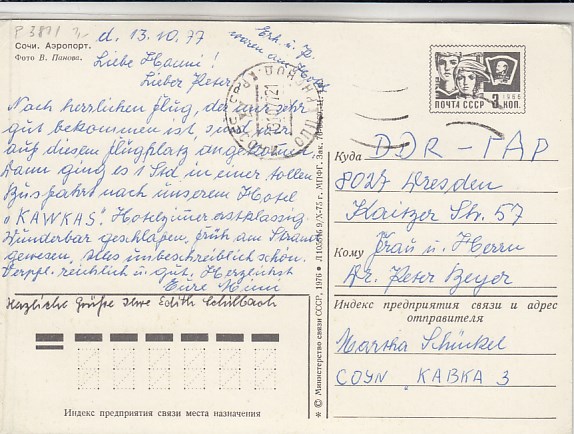 P 3871
d. 13.10.77
Сочи. Аэропорт.
Фото В. Панова.
Liebe Hanni!
Lieber Peter
Nach herrlichen Flug, der mir sehr
gut bekommen ist, sind wir
auf diesem Flugplatz angekommen
Dann ging es 1 Std in einer tollen
Busfahrt nach unserem Hotel
"KAWKAS". Hotelzimmer erstklassig
Wunderbar geschlafen, früh am Strand
gewesen, alles unbeschreiblich schön.
Verpfl. reichlich u. gut. Herzlichst
Eure
Herzliche Grüße Ihre Edith Schilbach
Индекс предприятия связи места назначения
* © Министерство связи СССР, 1976 •
ПОЧТА СССР 3 КОП.
1966
Куда DDR - ГДР
8027 Dresden
Kaitzer Str. 57
Кому Frau u. Herrn
Dr. Peter Beyer
Индекс предприятия связи и адрес
отправителя
Martha Schückel
СОЧИ "КАВКАЗ